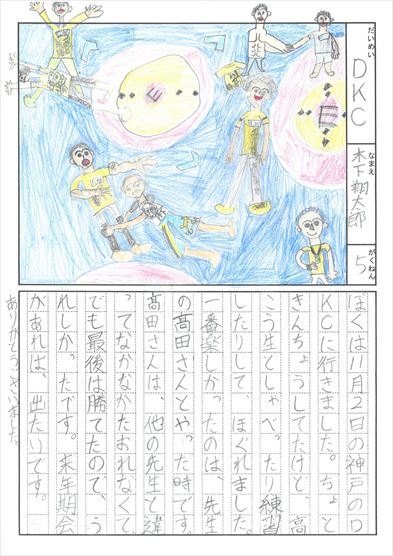 だいめい
DKC
なまえ
木下翔太郎
がくねん
5
ぼくは11月2日の神戸のD
KCに行きました。ちょっと
きんちょうしてたけど、高
こう生としゃべったり練習
したりして、ほぐれました。
一番楽しかったのは、先生
の高田さんとやった時です。
高田さんは、他の先生と違
ってなかなかたおれなくて
でも最後は勝てたので、う
れしかったです。来年期会
があれば、出たいです。
ありがとうございました。